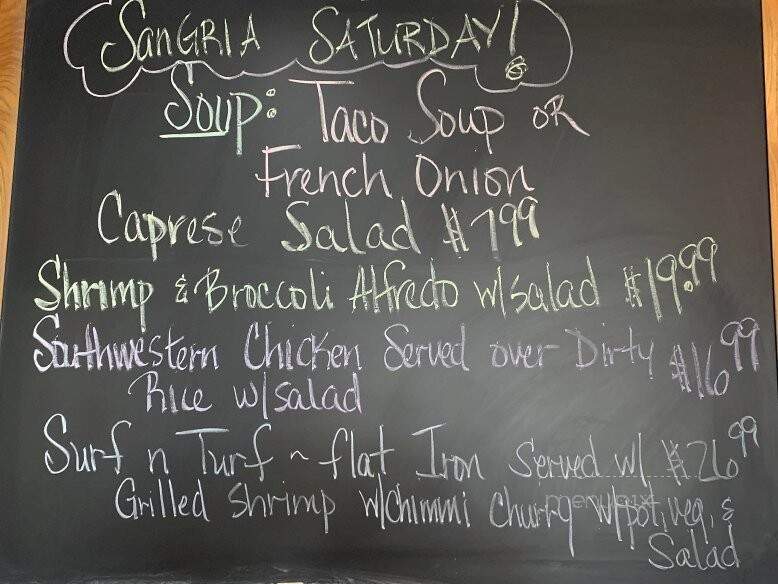 SanGRIA SATURDAY!
Soup: Taco Soup OR
French Onion
Caprese Salad $7.99
Shrimp & Broccoli Alfredo w/salad $19.99
Southwestern Chicken Served over Dirty $16.99
Rice w/salad
Surf n Turf ~ flat Iron Served w/ $26.99
Grilled Shrimp w/chimmi Churry w/pot, veg, &
Salad
menupix